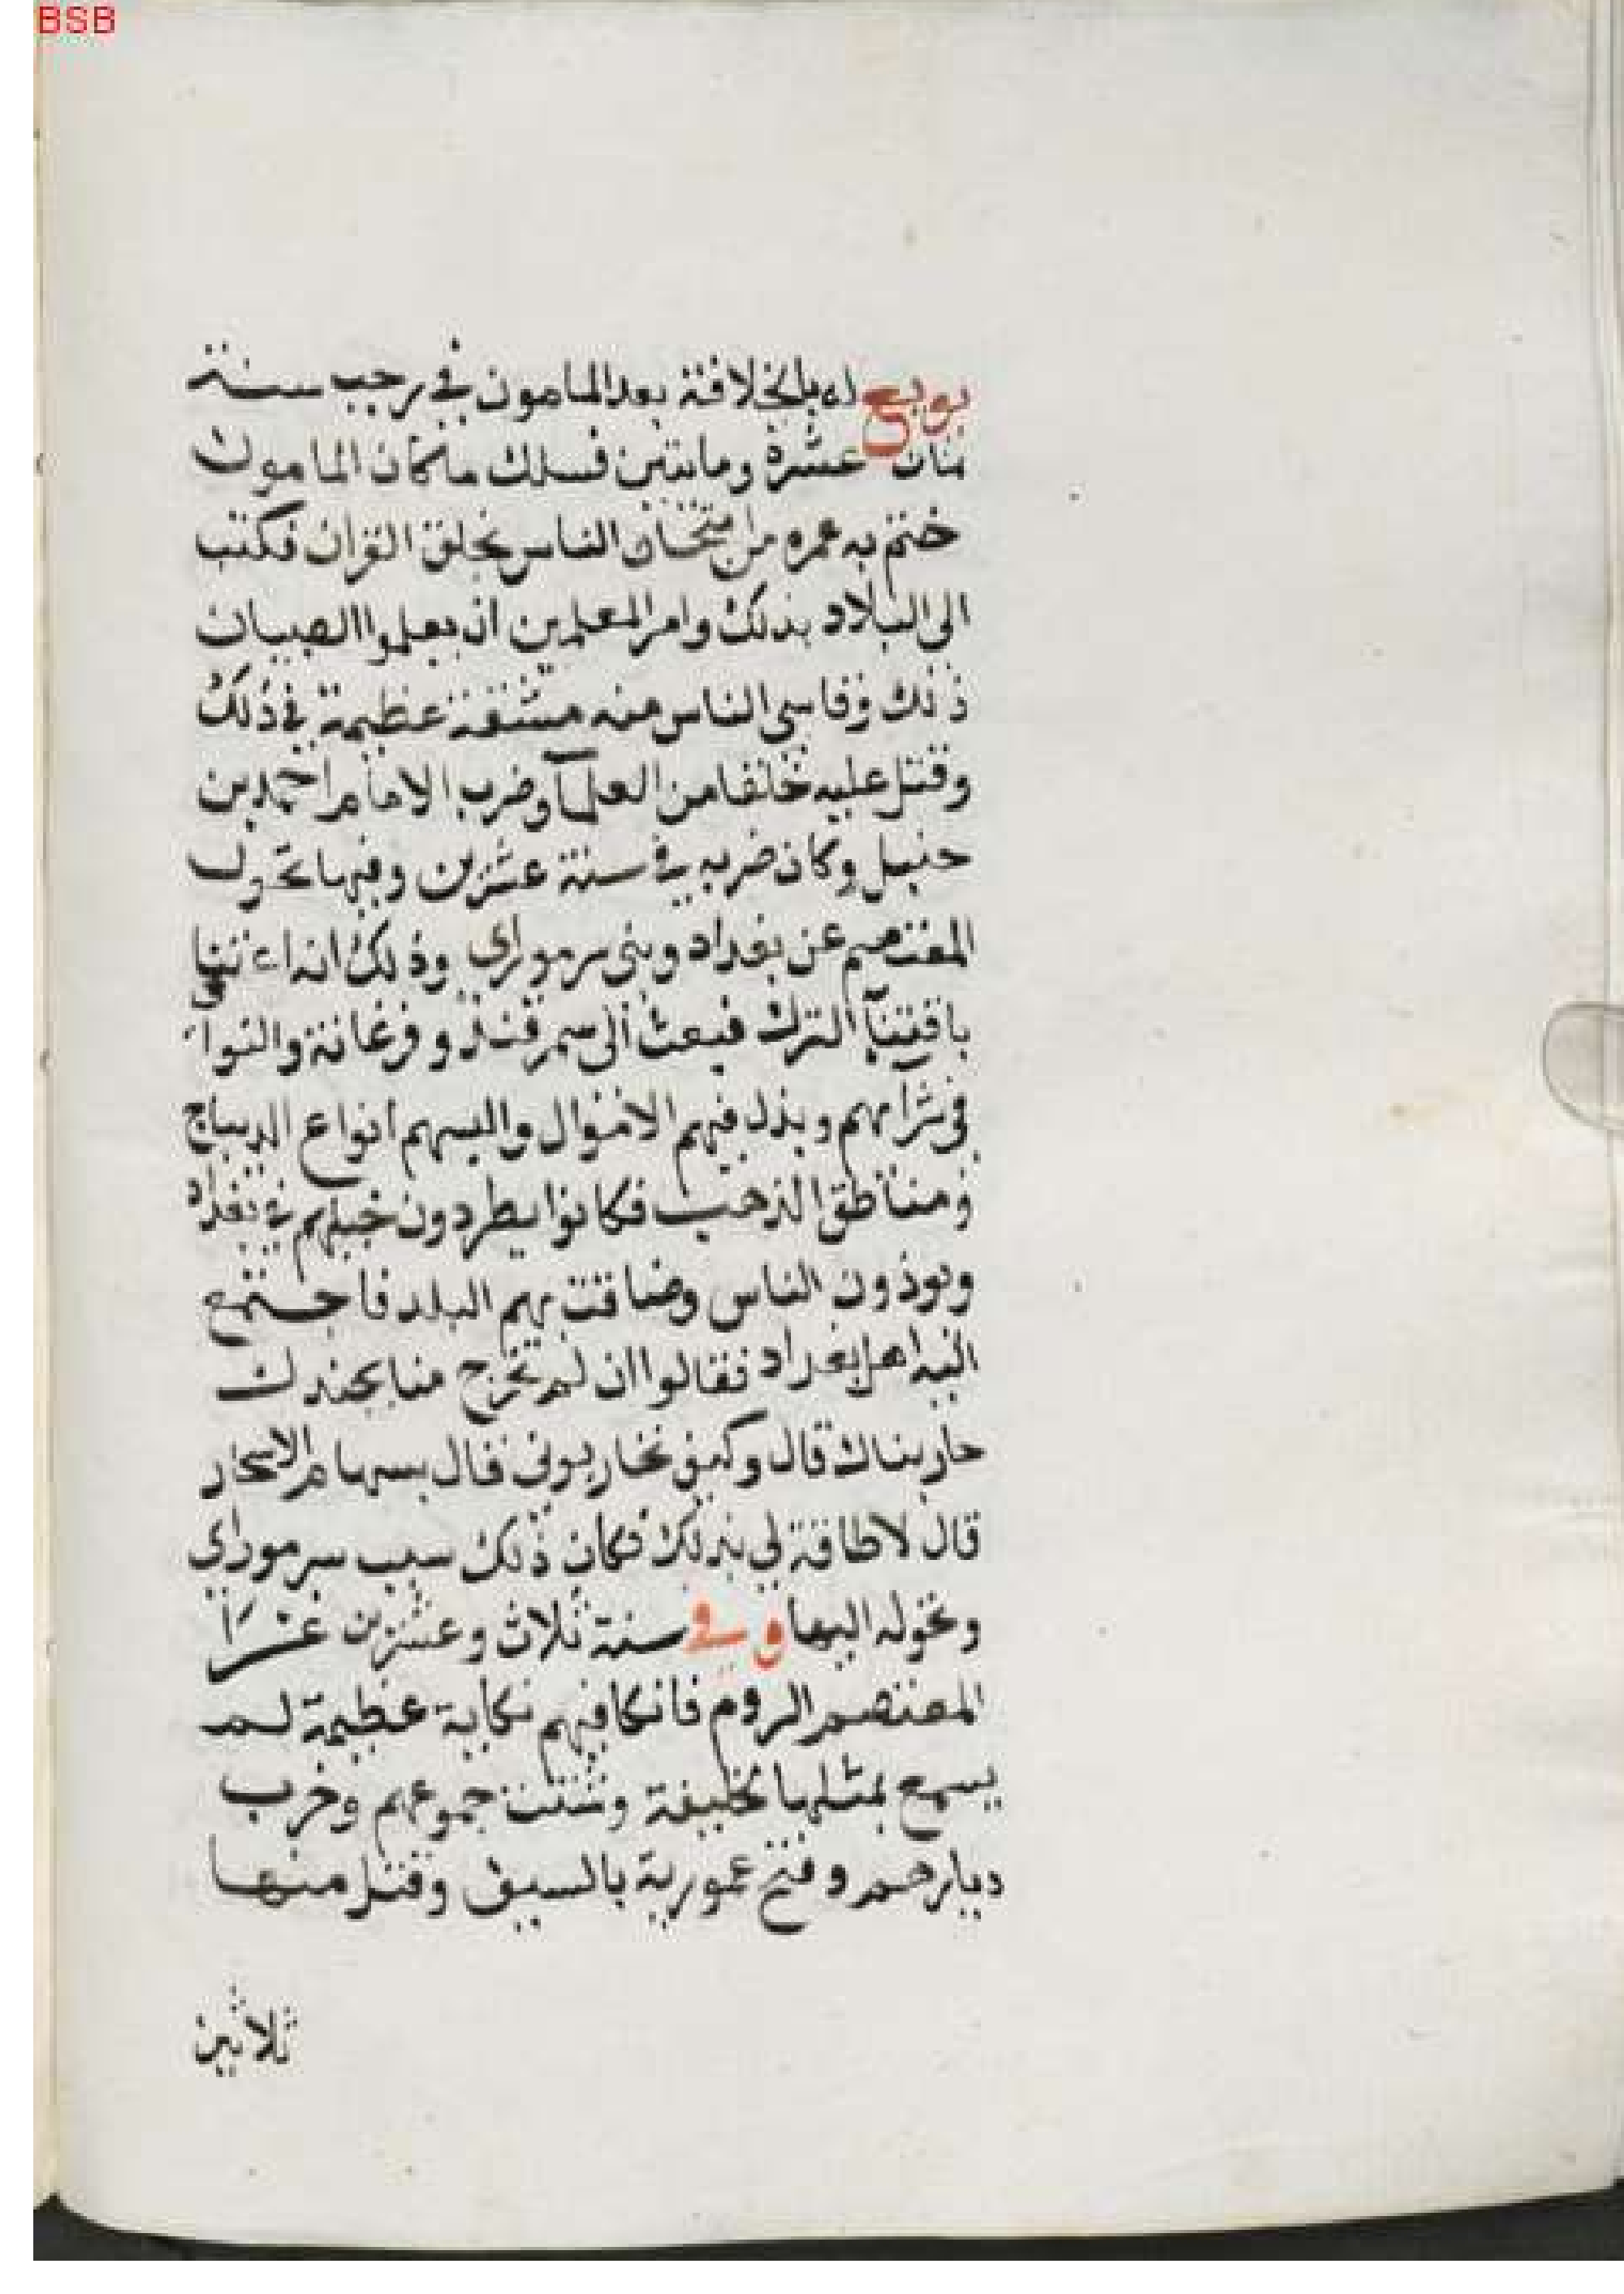 BSB
بويع له بالخلافة بعد المامون في رجب سنة
ثمان عشرة ومايتين فسلك ما كان المامون
ختم به عمره من امتحان الناس بخلق القران فكتب
الى البلاد بذلك وامر المعلمين ان يعلموا الصبيان
ذلك وقاسى الناس منه مشقة عظيمة في ذلك
وقتل عليه خلقا من العلمآ وضرب الامام احمد بن
حنبل وكان ضربه في سنة عشرين وفيها تحول
المعتصم عن بغداد وبنى سرموراي وذلك انه اعتنى
باقتنآ الترك فبعث الى سمرقند وفرغانة والنوا
في شرايهم وبذل فيهم الاموال والبسهم انواع الديباج
ومناطق الذهب فكانوا يطردون خيلهم في بغداد
ويوذون الناس وضاقت بهم البلد فاجتمع
اليه اهل بغداد فقالوا ان لم تخرج عنا بجندك
حاربناك قال وكيف تحاربوني قال بسهام الاسحار
قال لا طاقة لي بذلك فكان ذلك سبب سرموراي
وتحوله اليها وفي سنة ثلاث وعشرين غزا
المعتصم الروم فانكا فيهم نكاية عظيمة لم
يسمع بمثلها لخليفة وشتت جموعهم وخرب
ديارهم وفتح عمورية بالسيف وقتل منها
ثلاثين